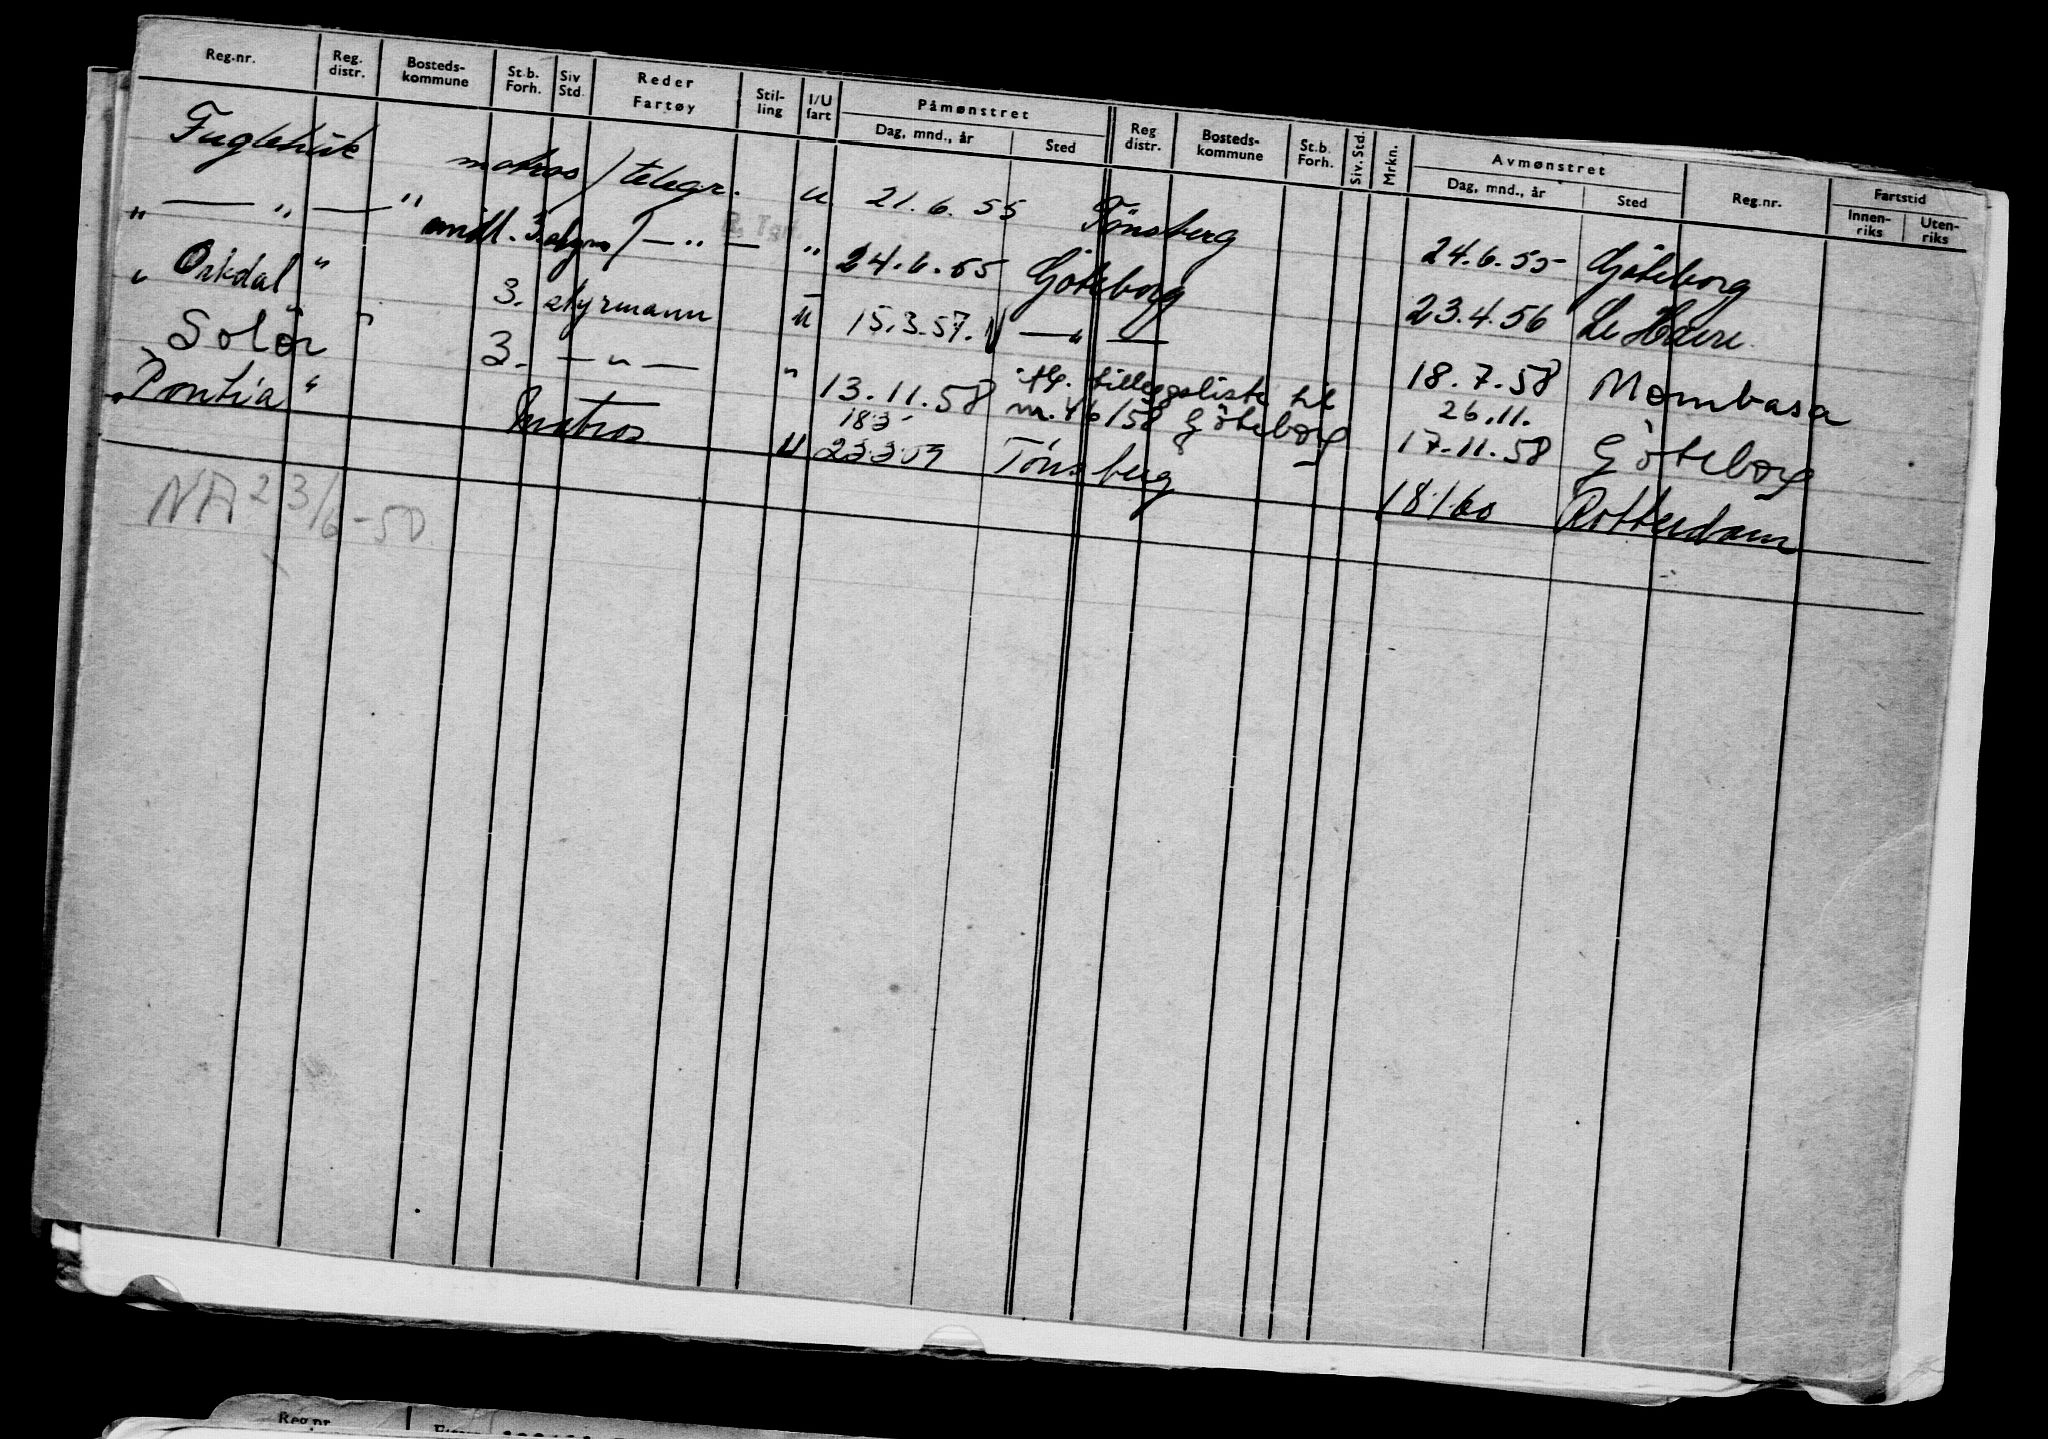 Reg.nr. Reg. distr. Bosteds-kommune St.b. Forh. Siv Std. Reder Fartøy Stil-ling I/U fart Påmønstret Dag, mnd., år Sted Reg distr. Bosteds-kommune St.b. Forh. Siv. Std. Mrkn. Avmønstret Dag, mnd., år Sted Reg.nr. Fartstid Innen-riks Uten-riks
Fuglehuk matros / telegr. u 21.6.55 Tönsberg 24.6.55 Göteborg
" — " — " midl. 3. styrm / — " — " 24.6.55 Göteborg 23.4.56 Le Havre
" Orkdal " 3. styrmann U 15.3.57. — " — 18.7.58 Mombasa
" Solör " 3. — " — " 13.11.58 tilleggsliste til nr. 46/58 Göteborg 26.11.
17.11.58 Göteborg
183
" Pontia " matros U 23359 Tönsberg 18/1 60 Rotterdam
NA 23/6-50
Reg.nr.